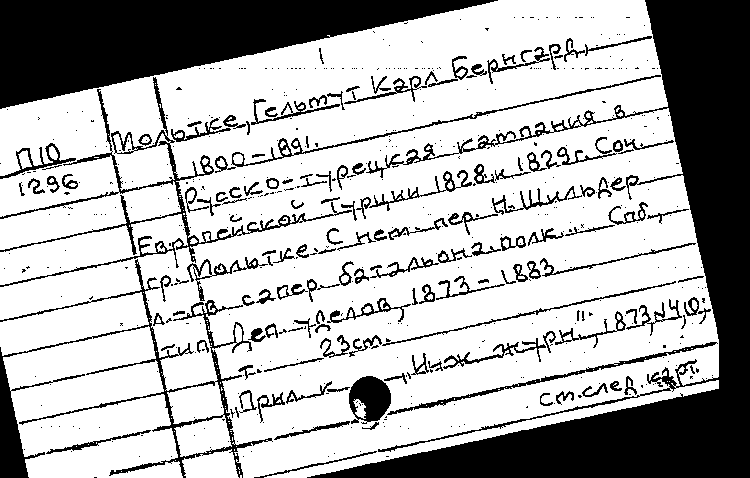 П10
1296
Мольтке, Гельмут Карл Бернгард,
1800-1891.
Русско-турецкая кампания в
Европейской Турции 1828 и 1829г. Соч.
гр. Мольтке. С нем. пер. Н. Шильдер
л.-гв. сапер. батальона. полк... Спб.,
тип. Деп. уделов, 1873-1883
т. 23см.
„Прил. к „Инж журн", 1873, №4,
ст. след. карт.